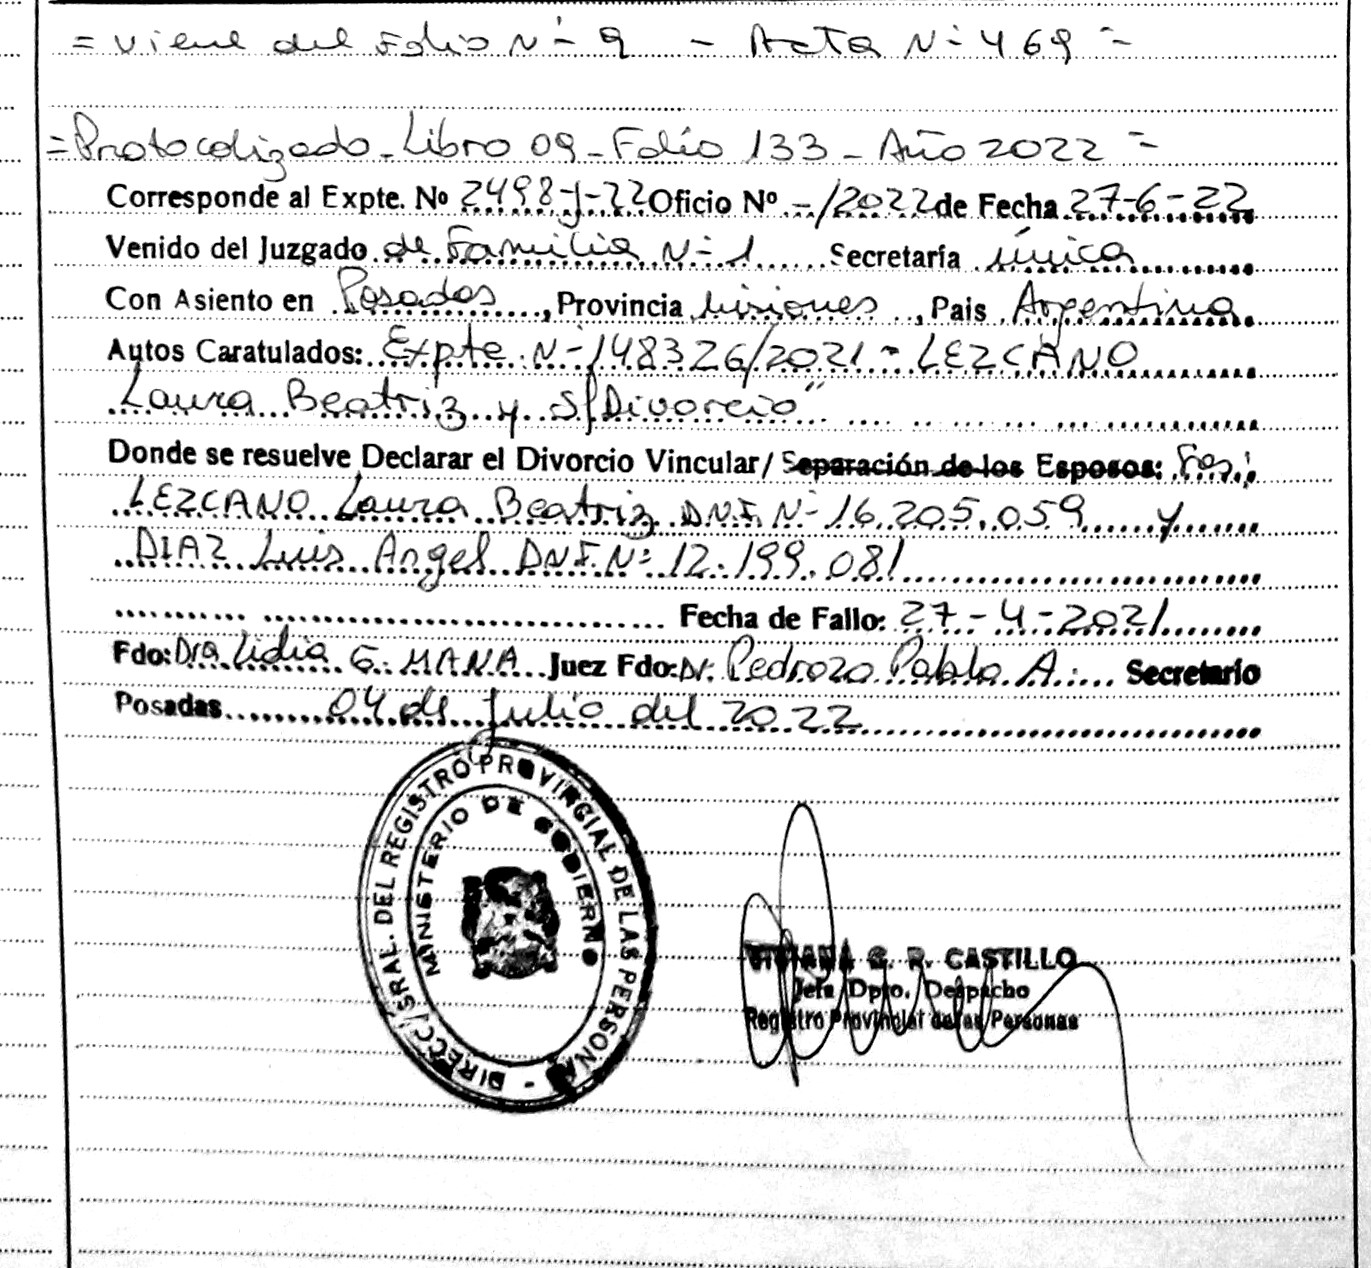 = Viene del Folio Nº 9 - Acta Nº 469 =
= Protocolizado - Libro 09 - Folio 133 - Año 2022 =
Corresponde al Expte. Nº 2498-J-22 Oficio Nº -/2022 de Fecha 27-6-22
Venido del Juzgado de Familia Nº 1 Secretaría única
Con Asiento en Posadas, Provincia Misiones, Pais Argentina
Autos Caratulados: Expte Nº 148326/2021 - LEZCANO
Laura Beatriz y S/Divorcio"
Donde se resuelve Declarar el Divorcio Vincular/ Separación de los Esposos:
LEZCANO Laura Beatriz D.N.I. Nº 16.205.059 y
DIAZ Luis Angel D.N.I. Nº 12.199.081
Fecha de Fallo: 27-4-2021
Fdo: Dra Lidia G. MANA Juez Fdo: Dr. Pedrozo Pablo A. Secretario
Posadas 04 de Julio del 2022
DIRECC/GRAL. DEL REGISTRO PROVINCIAL DE LAS PERSONAS -
MINISTERIO DE GOBIERNO
VIVIANA G. R. CASTILLO
Jefa Dpto. Despacho
Registro Provincial de las Personas